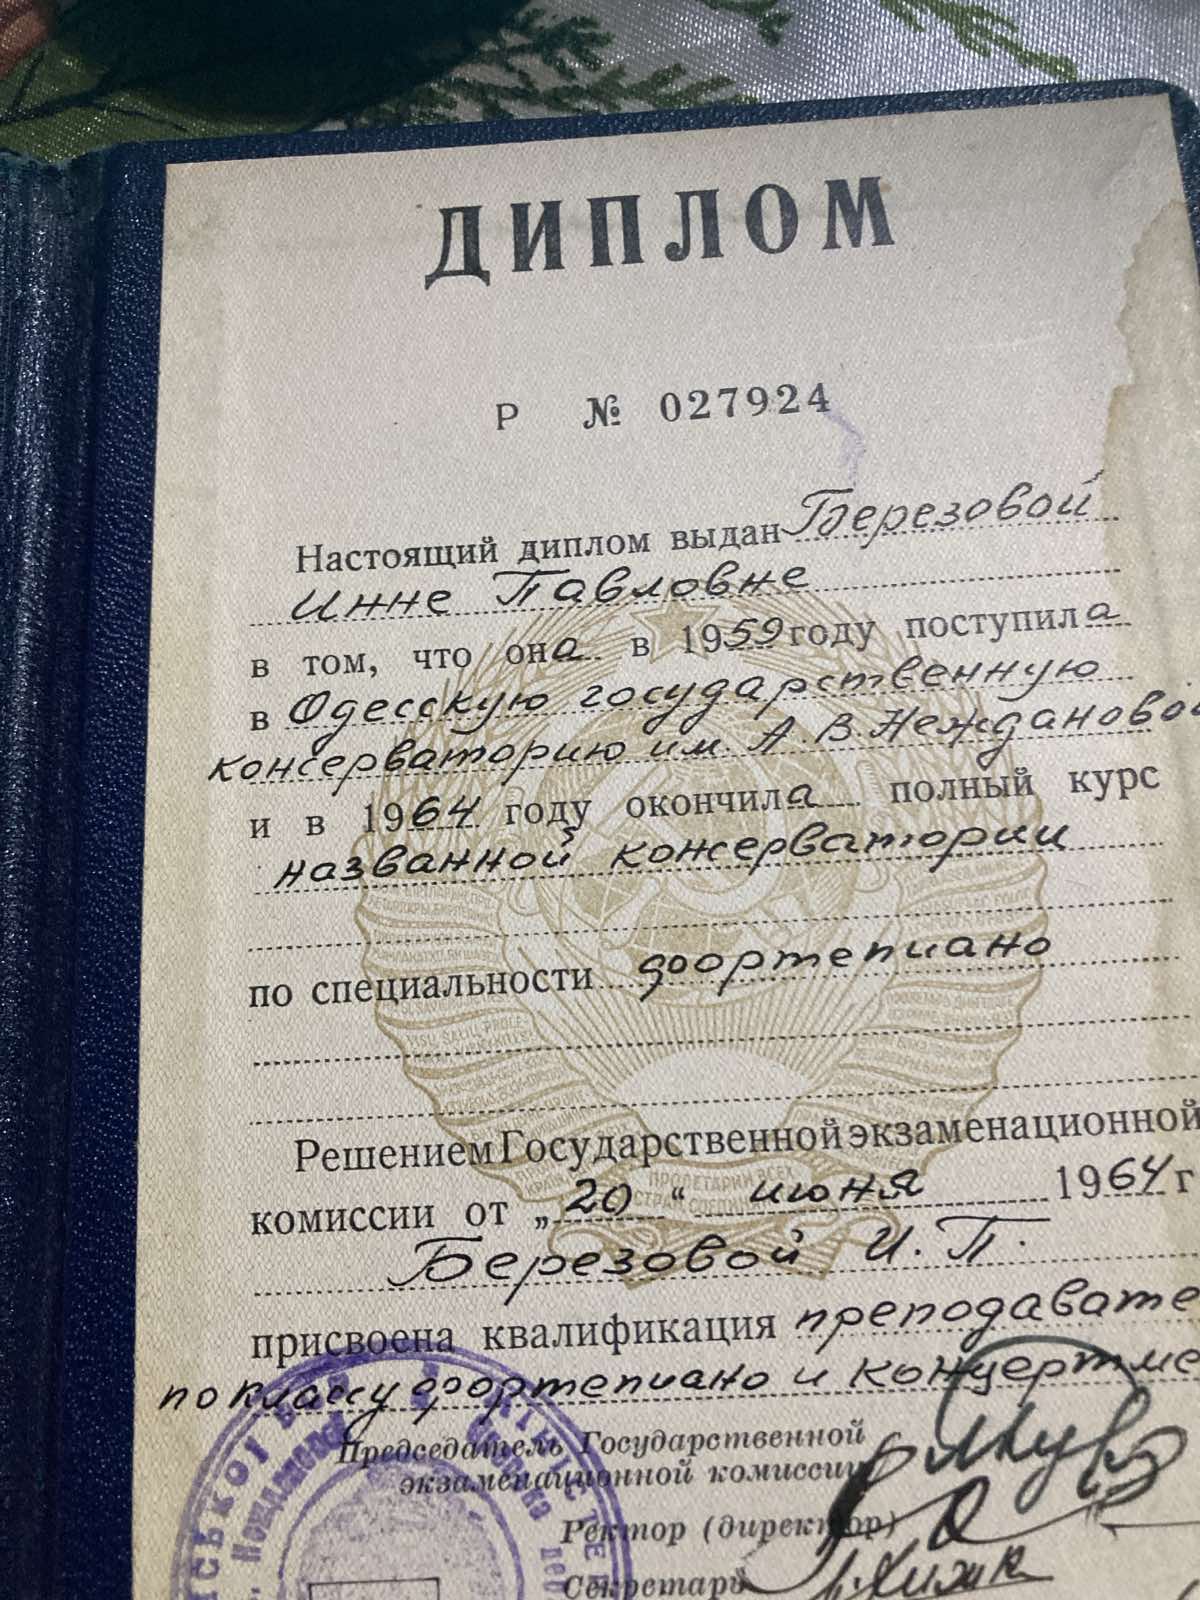 ДИПЛОМ
Р № 027924
Настоящий диплом выдан Березовой
Инне Павловне
в том, что она в 1959 году поступила
в Одесскую государственную
консерваторию им. А. В. Неждановой
и в 1964 году окончила полный курс
названной консерватории
по специальности фортепиано
Решением Государственной экзаменационной
комиссии от „20“ июня 1964 г
Березовой И. П.
присвоена квалификация преподавате
по классу фортепиано и концертме
Председатель Государственной
экзаменационной комиссии
Ректор (директор)
Секретарь
VISU ZEMJU PROLE-
ПРОЛЕТАРИИ ВСЕХ
СТРАН, СОЕДИНЯЙТЕСЬ